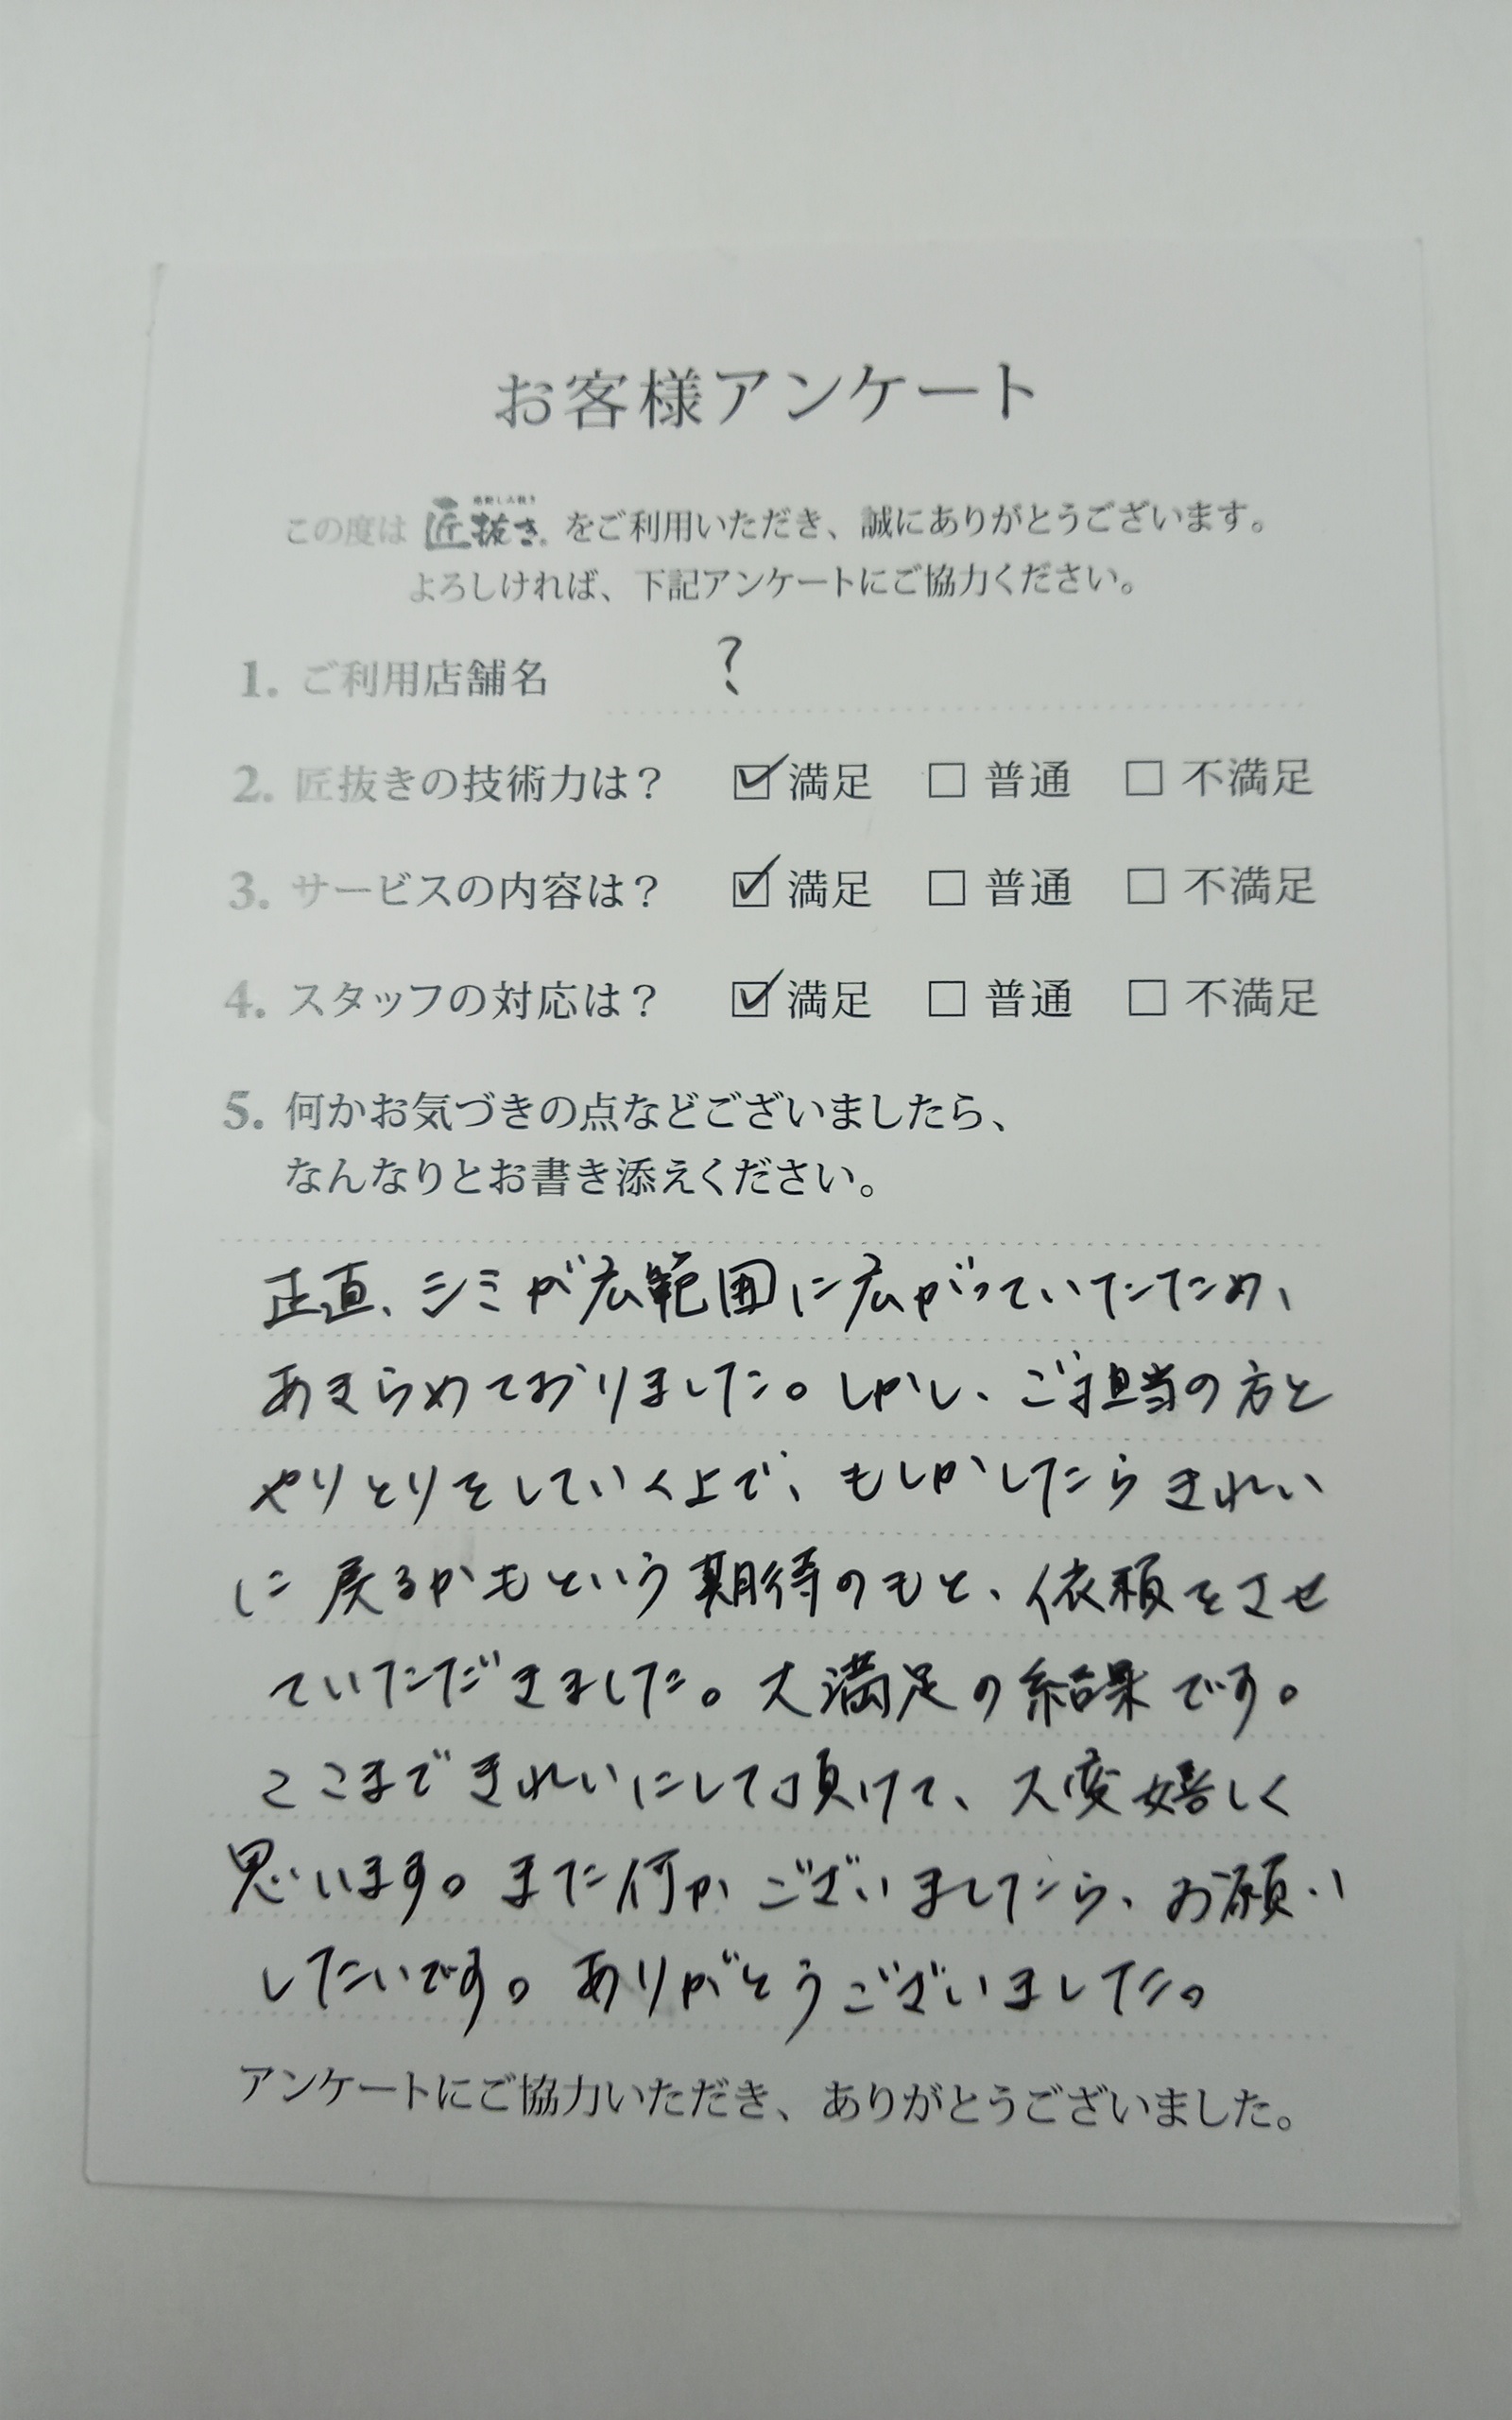 お客様アンケート
この度は 匠抜き をご利用いただき、誠にありがとうございます。
よろしければ、下記アンケートにご協力ください。
1. ご利用店舗名 ?
2. 匠抜きの技術力は? ☑ 満足 □ 普通 □ 不満足
3. サービスの内容は? ☑ 満足 □ 普通 □ 不満足
4. スタッフの対応は? ☑ 満足 □ 普通 □ 不満足
5. 何かお気づきの点などございましたら、
なんなりとお書き添えください。
正直、シミが広範囲に広がっていたため、
あきらめておりました。しかし、ご担当の方と
やりとりをしていく上で、もしかしたらきれい
に戻るかもという期待のもと、依頼をさせ
ていただきました。大満足の結果です。
ここまできれいにして頂けて、大変嬉しく
思います。また何かございましたら、お願い
したいです。ありがとうございました。
アンケートにご協力いただき、ありがとうございました。